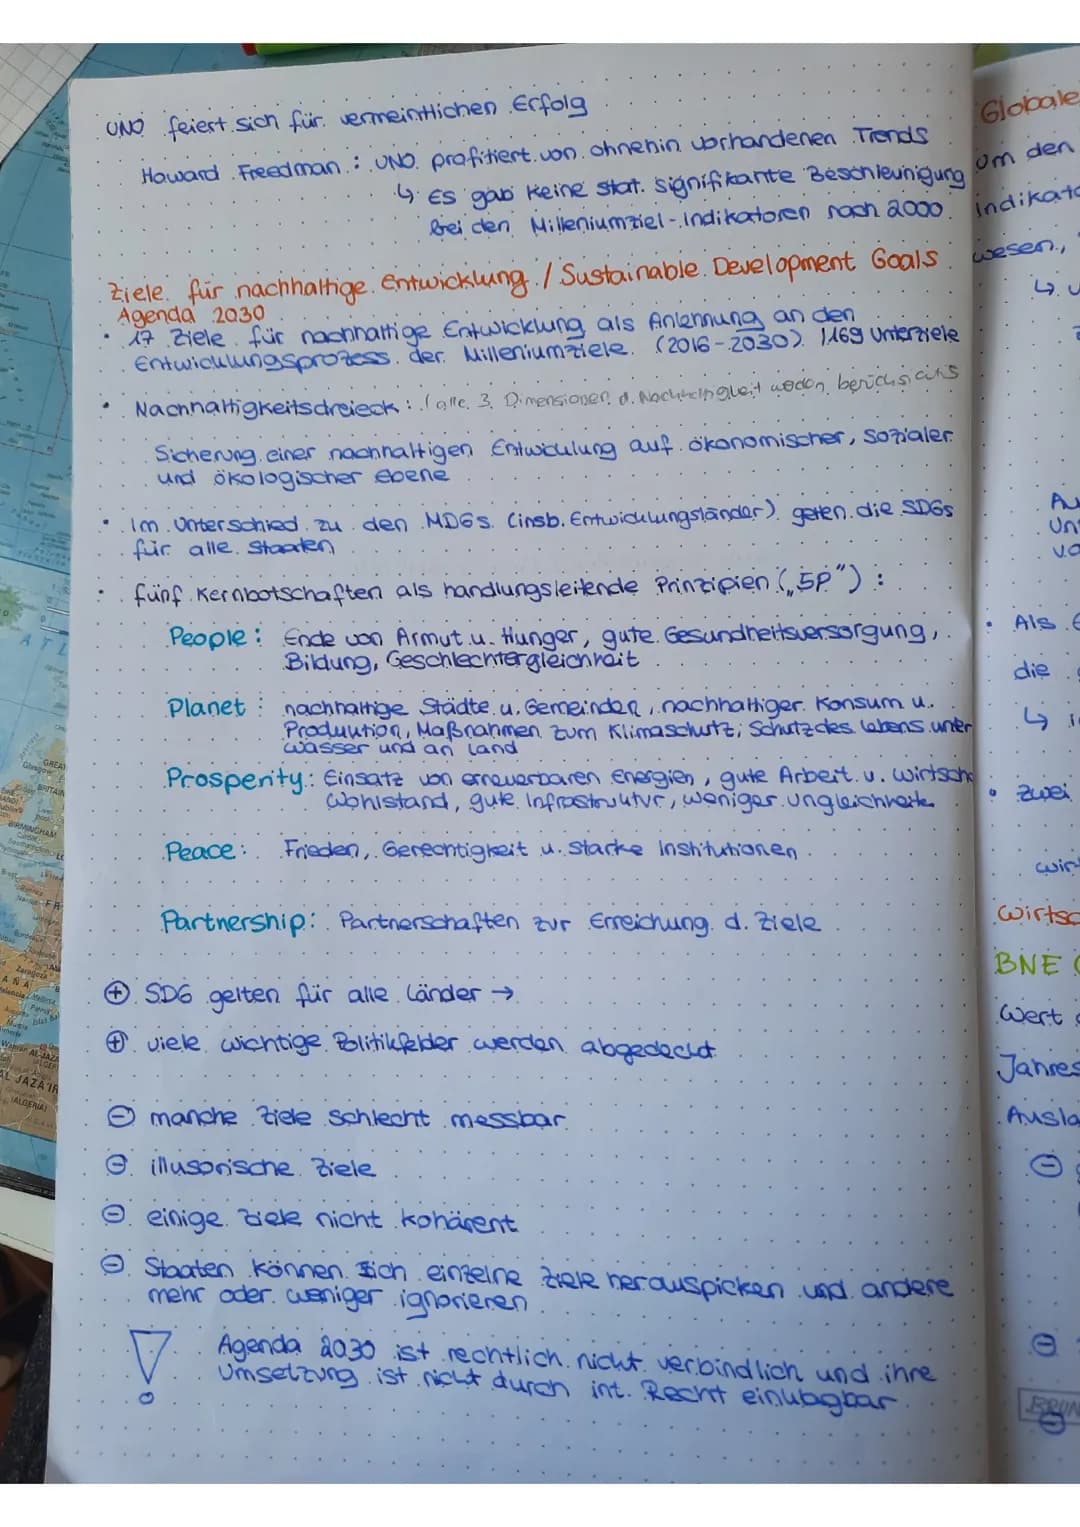 UNO feiert sich für vermeintlichen Erfolg
Howard Freedman: UNO profitiert von ohnehin vorhandenen Trends
↳ Es gab keine stat. signifikante Beschleunigung
bei den Milleniumziel-Indikatoren nach 2000.
Ziele für nachhaltige Entwicklung / Sustainable Development Goals
Agenda 2030
• 17 Ziele für nachhaltige Entwicklung als Anlehnung an den
Entwicklungsprozess der Milleniumziele (2016-2030) 1169 Unterziele
• Nachhaltigkeitsdreieck: (alle 3 Dimensionen d. Nachhaltigkeit werden berücksichts
Sicherung einer nachhaltigen Entwicklung auf ökonomischer, sozialer
und ökologischer Ebene
• Im Unterschied zu den MDGs (insb. Entwicklungsländer) gelten die SDGs
für alle Staaten
• fünf Kernbotschaften als handlungsleitende Prinzipien („5P"):
People: Ende von Armut u. Hunger, gute Gesundheitsversorgung,
Bildung, Geschlechtergleichheit
Planet: nachhaltige Städte u. Gemeinden, nachhaltiger Konsum u.
Produktion, Maßnahmen zum Klimaschutz; Schutz des Lebens unter
Wasser und an Land
Prosperity: Einsatz von erneuerbaren Energien, gute Arbeit u. wirtsch
Wohlstand, gute Infrastruktur, weniger Ungleichheit
Peace: Frieden, Gerechtigkeit u. starke Institutionen
Partnership: Partnerschaften zur Erreichung d. Ziele
⊕ SDG gelten für alle Länder →
⊕ viele wichtige Politikfelder werden abgedeckt
⊖ manche Ziele schlecht messbar
⊖ illusorische Ziele
⊖ einige Ziele nicht kohärent
⊖ Staaten können sich einzelne Ziele herauspicken und andere
mehr oder weniger ignorieren
! Agenda 2030 ist rechtlich nicht verbindlich und ihre
Umsetzung ist nicht durch int. Recht einklagbar
Globale
um den
Indikato
wesen,
• Als
die
↳
• zwei
wirt
Wirtsc
BNE
Wert
Jahres
Ausla
⊖
⊖
GREAT
BRITAIN
BIRMINGHAM
AL JAZA'IR
(ALGERIA)